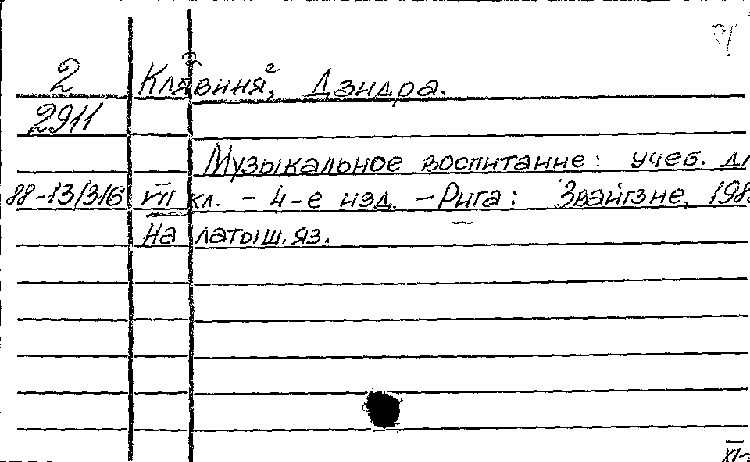 2 Клявиня², Дзидра.
2911
Музыкальное воспитание: учеб.
88-13/316 VII кл. - 4-е изд. - Рига: Звайгзне, 198
На латыш. яз.